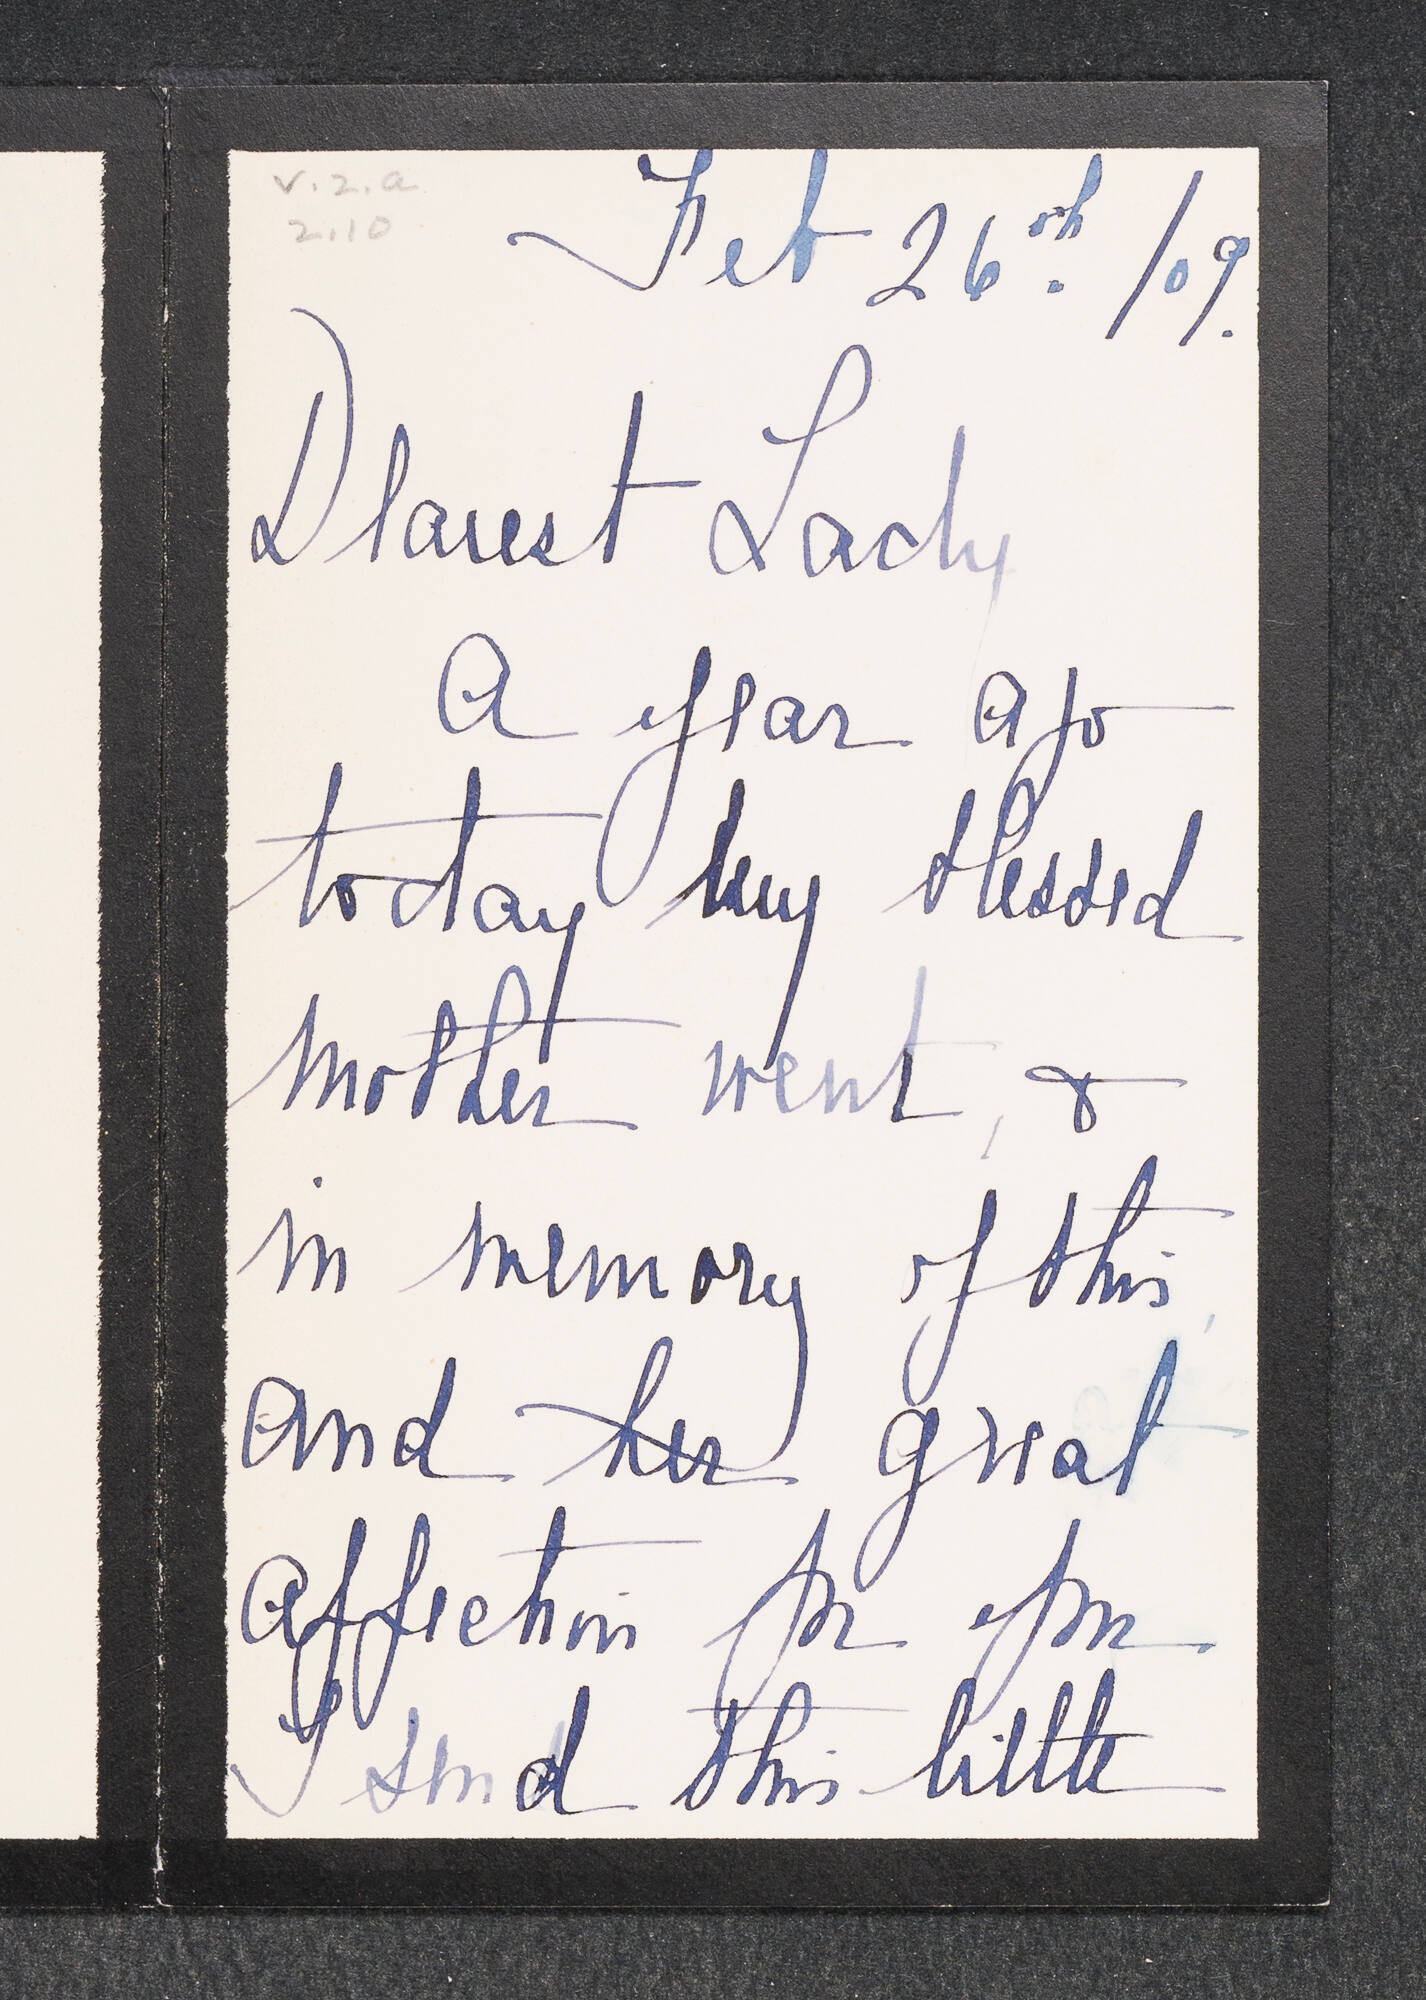 v.2.a
2.10
Feb 26th. /09.
Dearest Lady
A year ago
today my blessed
Mother went, &
in memory of this,
and her great
affection for you
I send this little